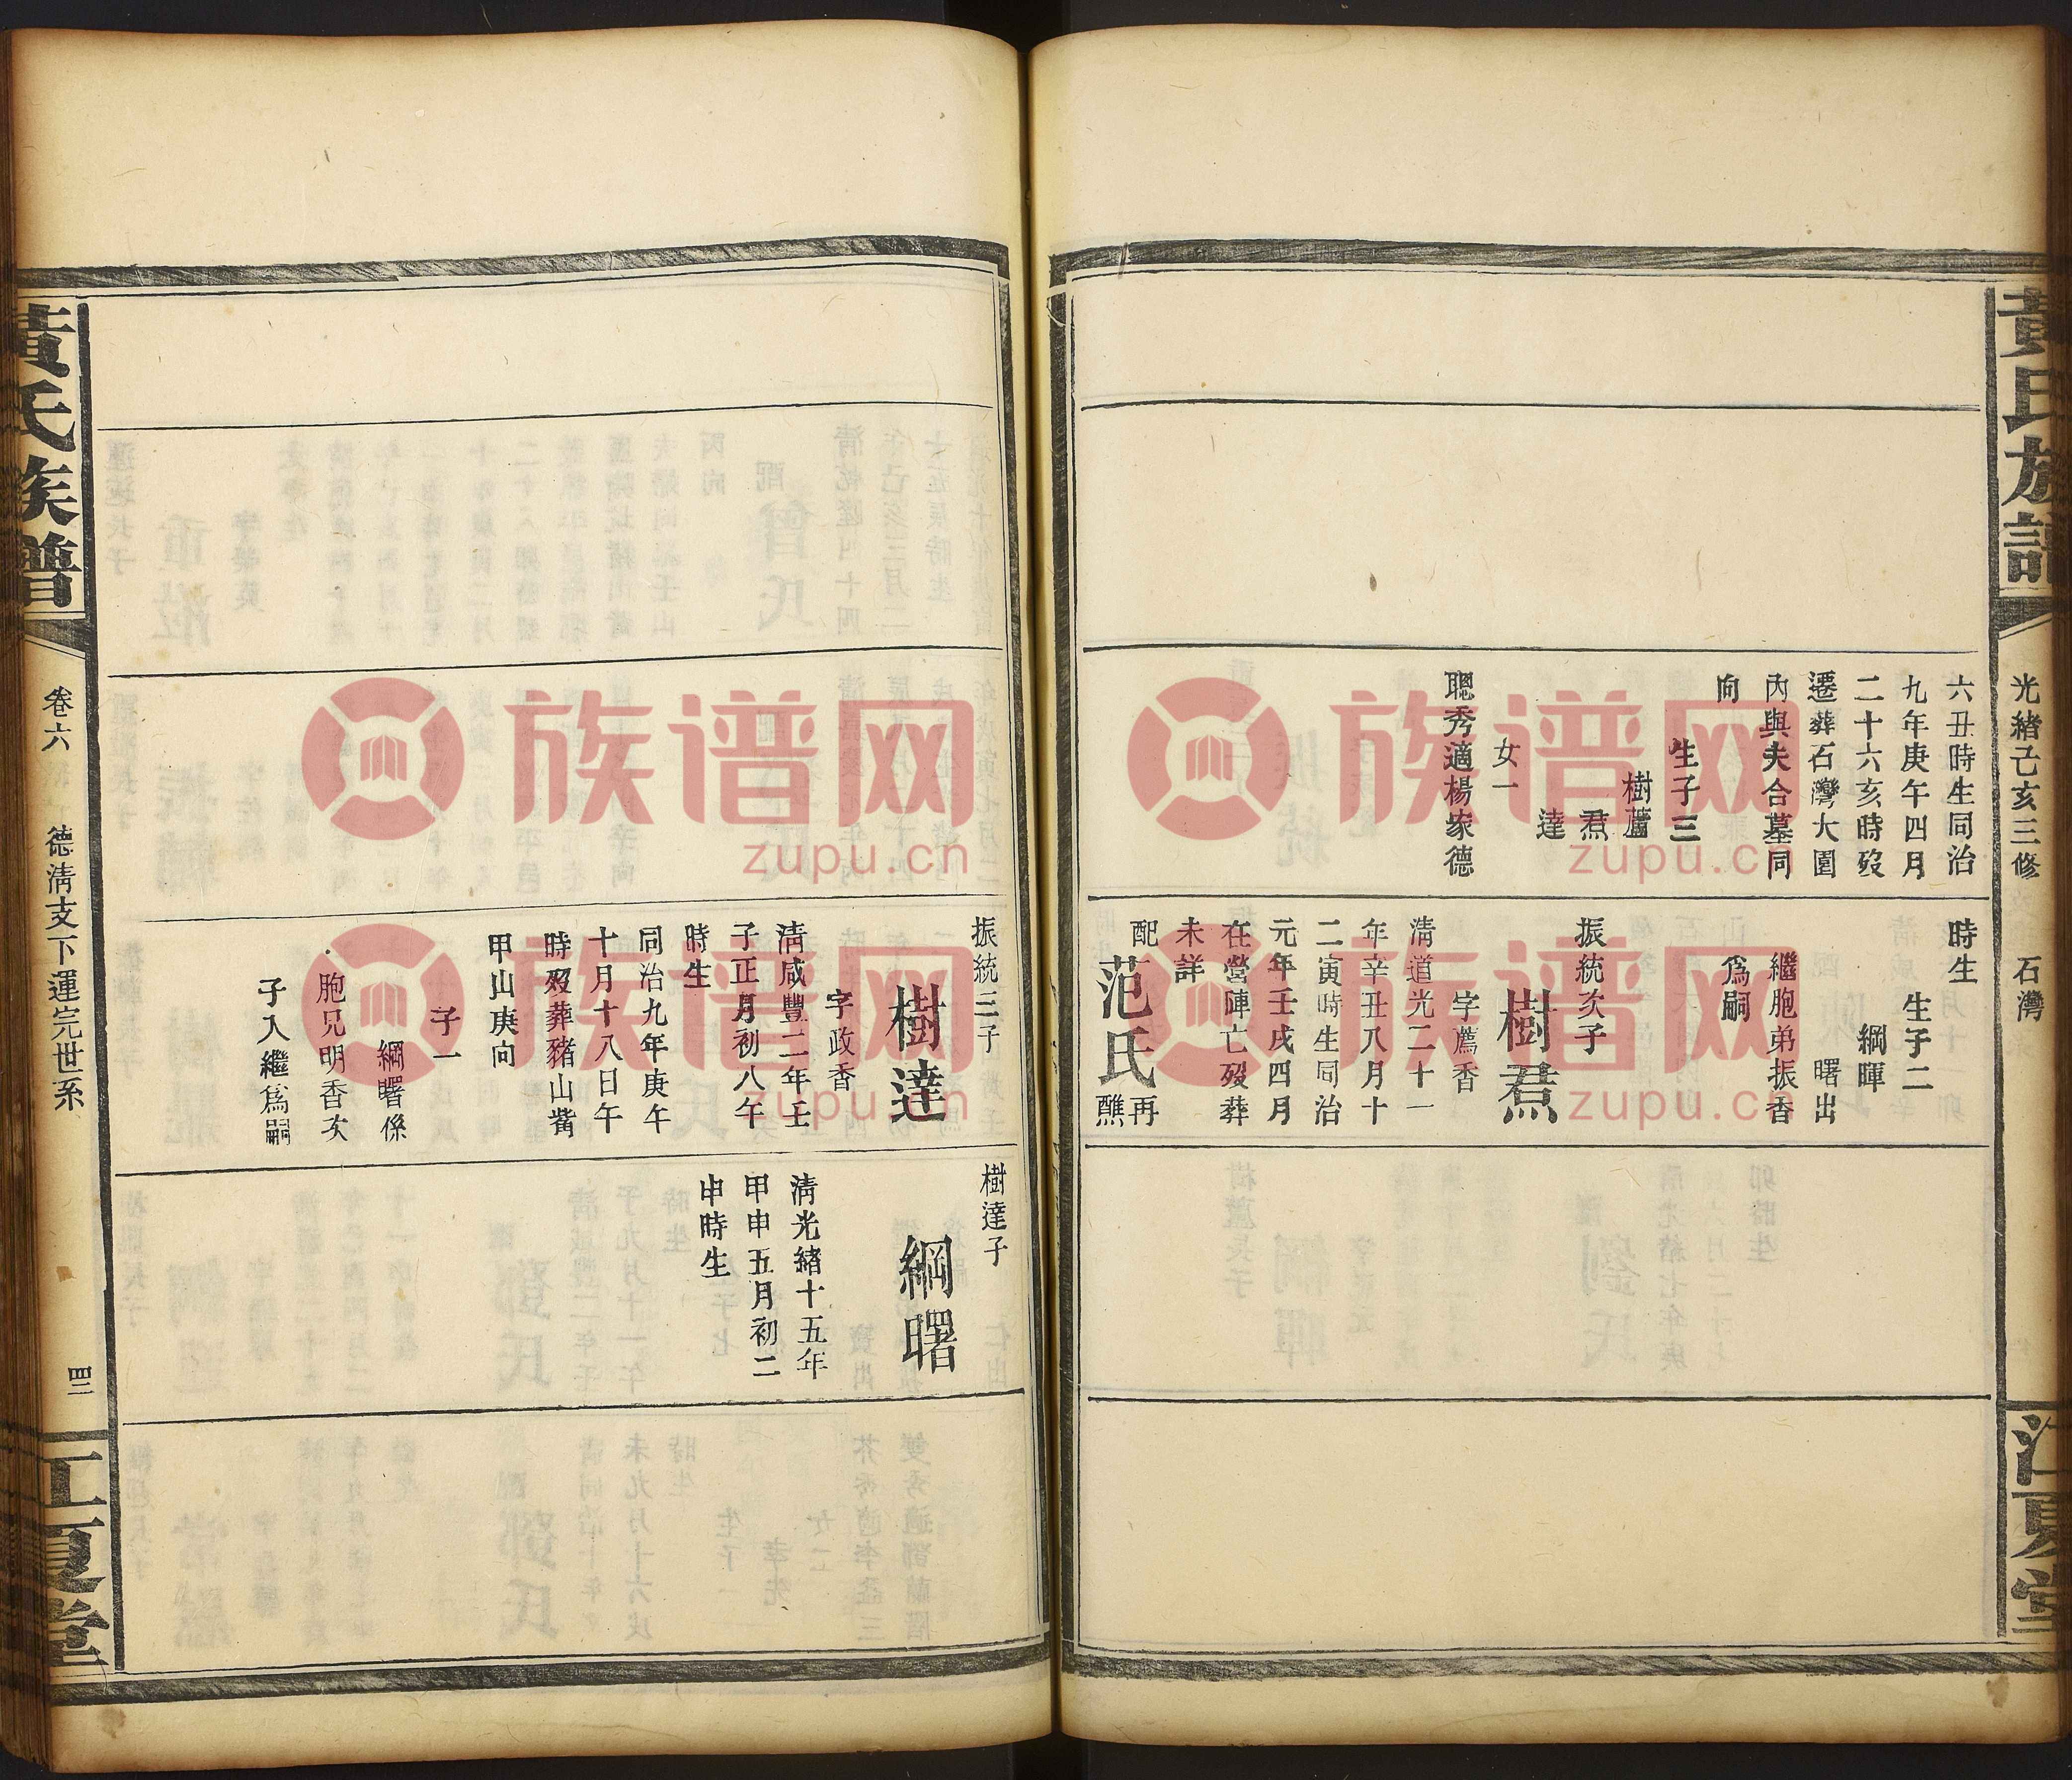 黃氏族譜
光緒己亥三修
石灣
江夏堂
六丑時生同治
九年庚午四月
二十六亥時歿
遷葬石灣大園
內與夫合墓同
向
生子三
樹蘆
焄
達
女一
聰秀適楊家德
時生
生子二
綱暉
曙出
繼胞弟振香
爲嗣
振統次子
樹焄
字薦香
清道光二十一
年辛丑八月十
二寅時生同治
元年壬戌四月
在營陣亡歿葬
未詳
配范氏再醮
振統三子
樹達
字政香
清咸豐二年壬
子正月初八午
時生
同治九年庚午
十月十八日午
時歿葬豬山觜
甲山庚向
子一
綱曙係
胞兄明香次
子入繼爲嗣
樹達子
綱曙
清光緒十五年
甲申五月初二
申時生
黃氏族譜
卷六
德清支下運完世系
四三
江夏堂
族谱网
zupu.cn
族谱网
zupu.cn
族谱网
zupu.cn
族谱网
zupu.cn